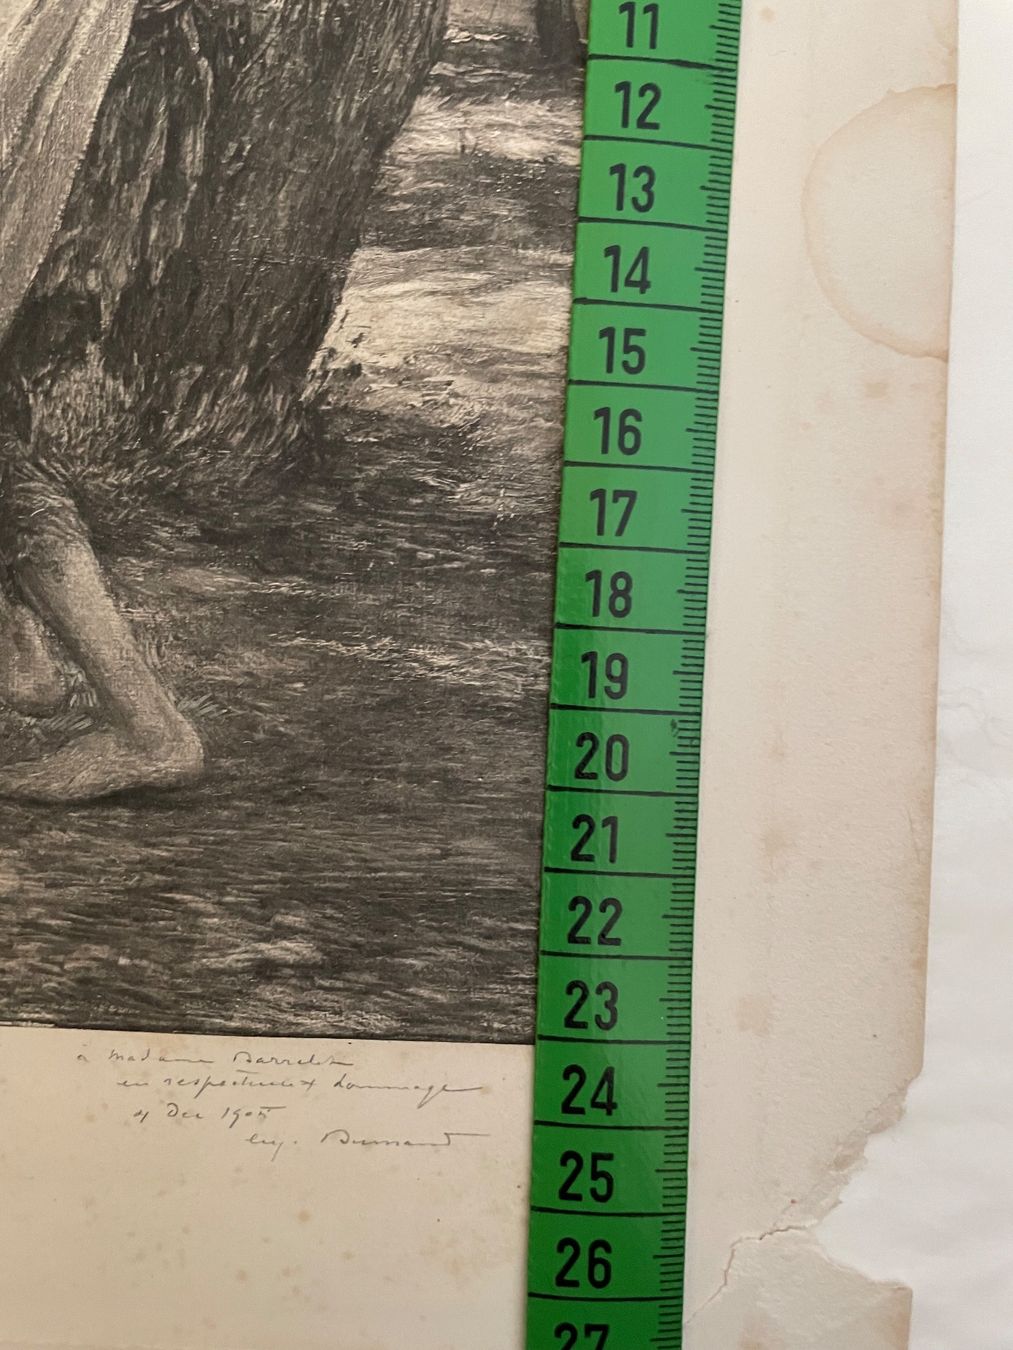 11
12
13
14
15
16
17
18
19
20
21
22
23
24
25
26
27
à Madame Barrelet
en respectueux hommage
4 Dec 1905
Eug. Burnand